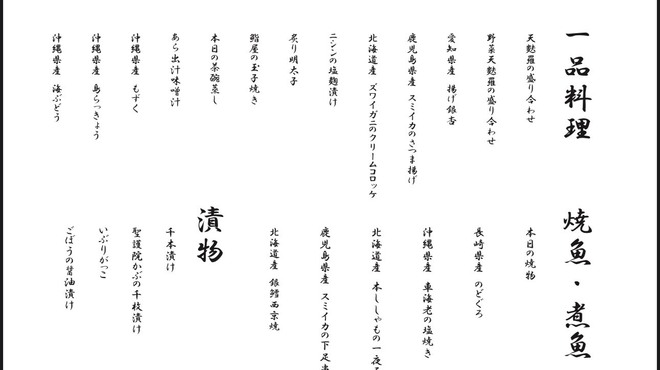 一品料理
天麩羅の盛り合わせ
野菜天麩羅の盛り合わせ
愛知県産 揚げ銀杏
鹿児島県産 スミイカのさつま揚げ
北海道産 ズワイガニのクリームコロッケ
ニシンの塩麹漬け
炙り明太子
鮨屋の玉子焼き
本日の茶碗蒸し
あら出汁味噌汁
沖縄県産 もずく
沖縄県産 島らっきょう
沖縄県産 海ぶどう
焼魚・煮魚
本日の焼物
長崎県産 のどぐろ
沖縄県産 車海老の塩焼き
北海道産 本ししゃもの一夜
鹿児島県産 スミイカの下足
北海道産 銀鱈西京焼
漬物
千本漬け
聖護院かぶの千枚漬け
いぶりがっこ
ごぼうの醤油漬け